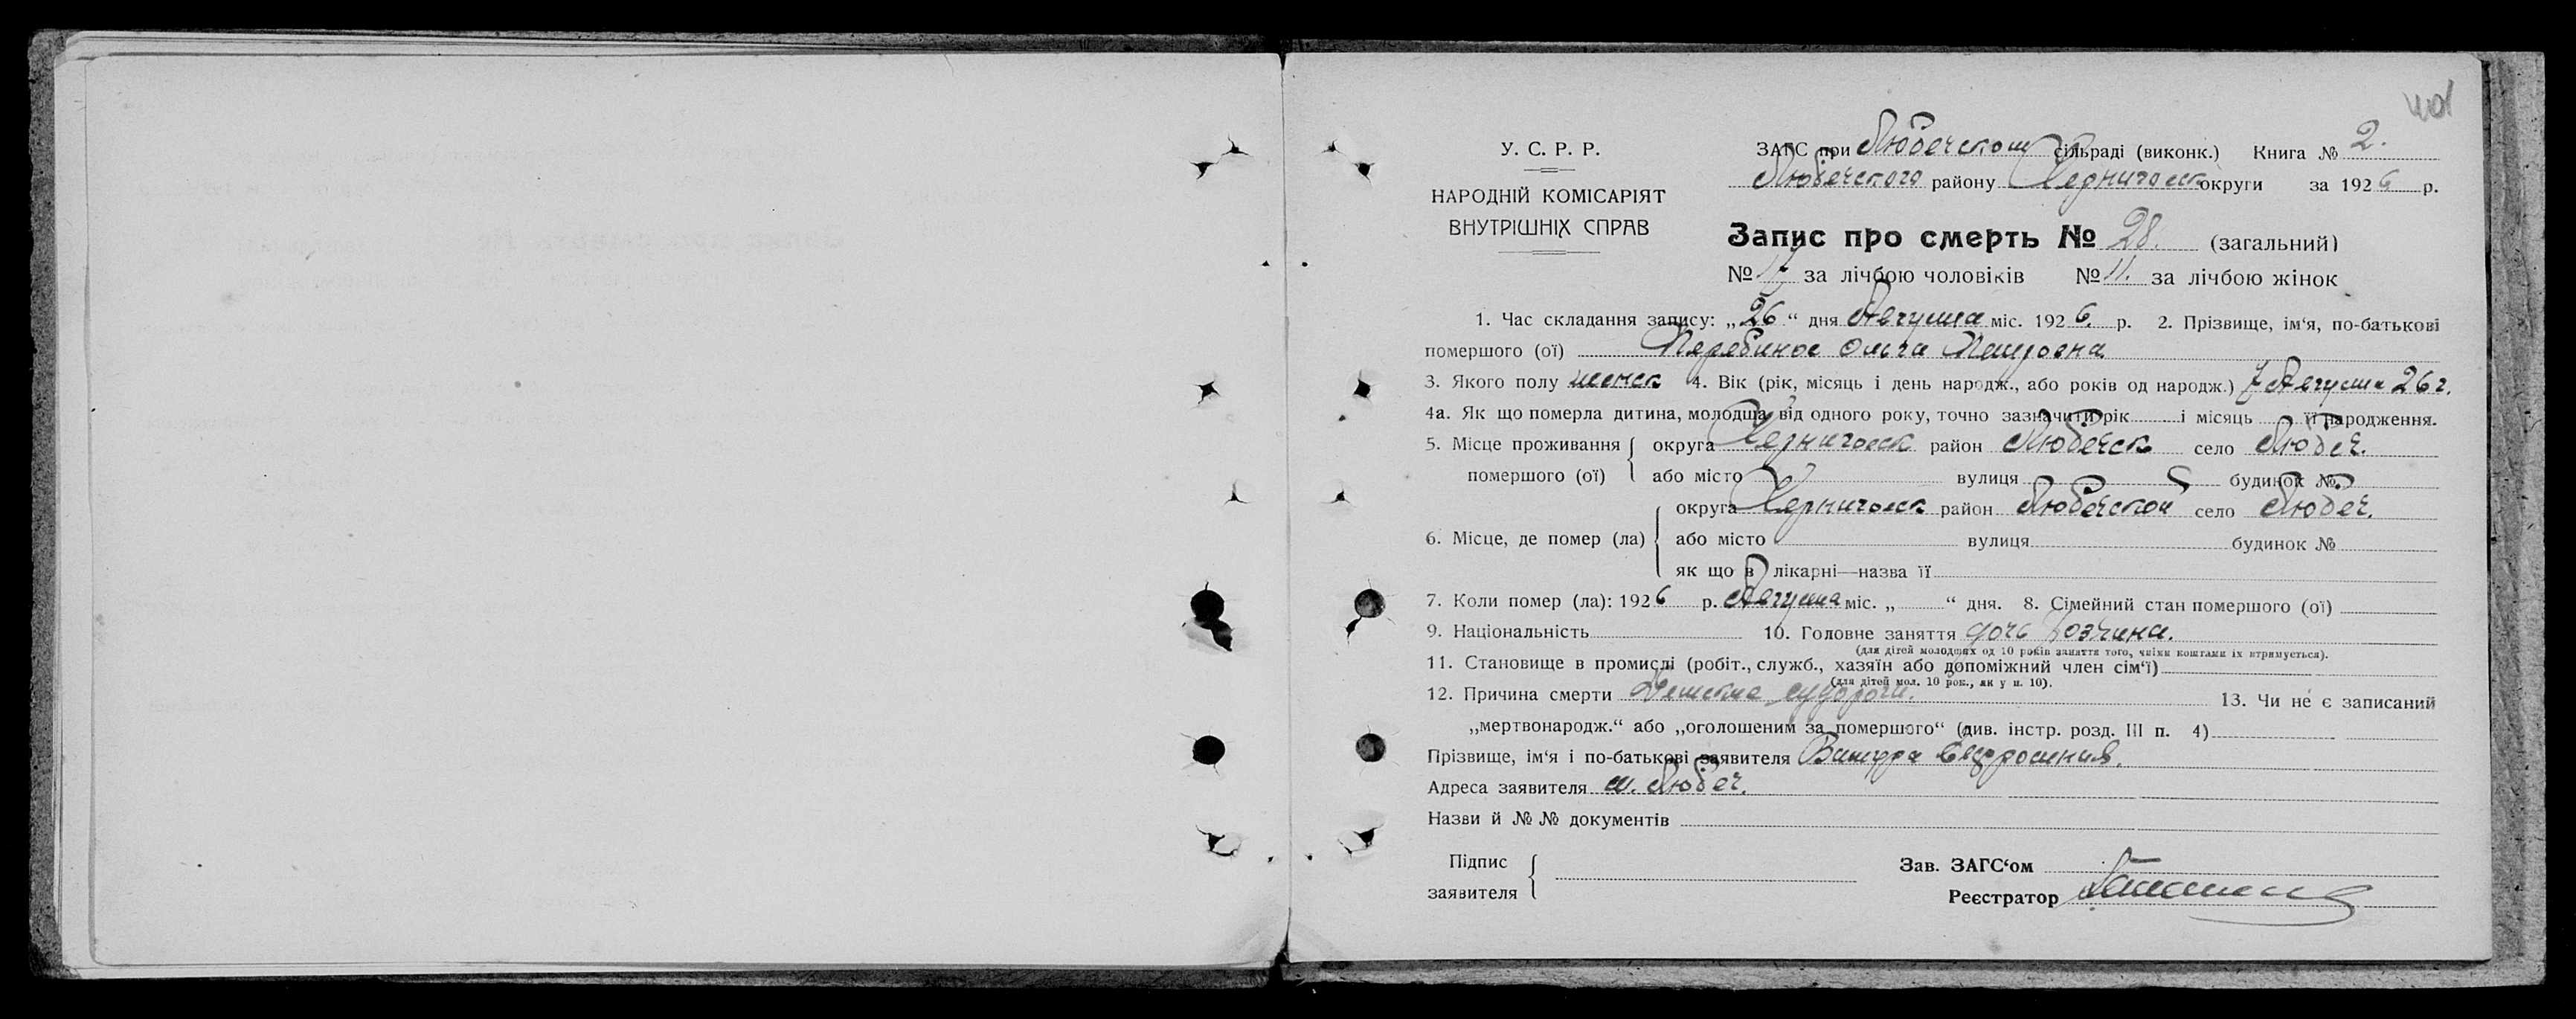 401
У. С. Р. Р.
НАРОДНІЙ КОМІСАРІЯТ
ВНУТРІШНІХ СПРАВ
ЗАГС при Любечском сільраді (виконк.) Книга № 2.
Любечского району Черниговск округи за 1926 р.
Запис про смерть № 28. (загальний)
№ 17 за лічбою чоловіків № 11. за лічбою жінок
1. Час складання запису: „26“ дня Августа міс. 1926. р. 2. Прізвище, ім'я, по-батькові
помершого (ої) Ольга Петровна
3. Якого полу женск 4. Вік (рік, місяць і день народж., або років од народж.) 7 Августа 26 г.
4а. Як що померла дитина, молодша від одного року, точно зазначити рік і місяць її народження.
5. Місце проживання округа Черниговск район Любечск село Любеч.
помершого (ої) або місто вулиця будинок №
округа Черниговск район Любечской село Любеч.
6. Місце, де помер (ла) або місто вулиця будинок №
як що в лікарні—назва її
7. Коли помер (ла): 1926 р. Августа міс. „ “ дня. 8. Сімейний стан помершого (ої)
9. Національність 10. Головне заняття дочь
(для дітей молодших од 10 років заняття того, чиїми коштами їх втримується).
11. Становище в промислі (робіт., служб., хазяїн або допоміжний член сім'ї)
(для дітей мол. 10 рок., як у п. 10).
12. Причина смерти судороги. 13. Чи не є записаний
„мертвонародж.“ або „оголошеним за помершого“ (див. інстр. розд. III п. 4)
Прізвище, ім'я і по-батькові заявителя
Адреса заявителя м. Любеч.
Назви й № № документів
Підпис
заявителя
Зав. ЗАГС'ом
Реєстратор